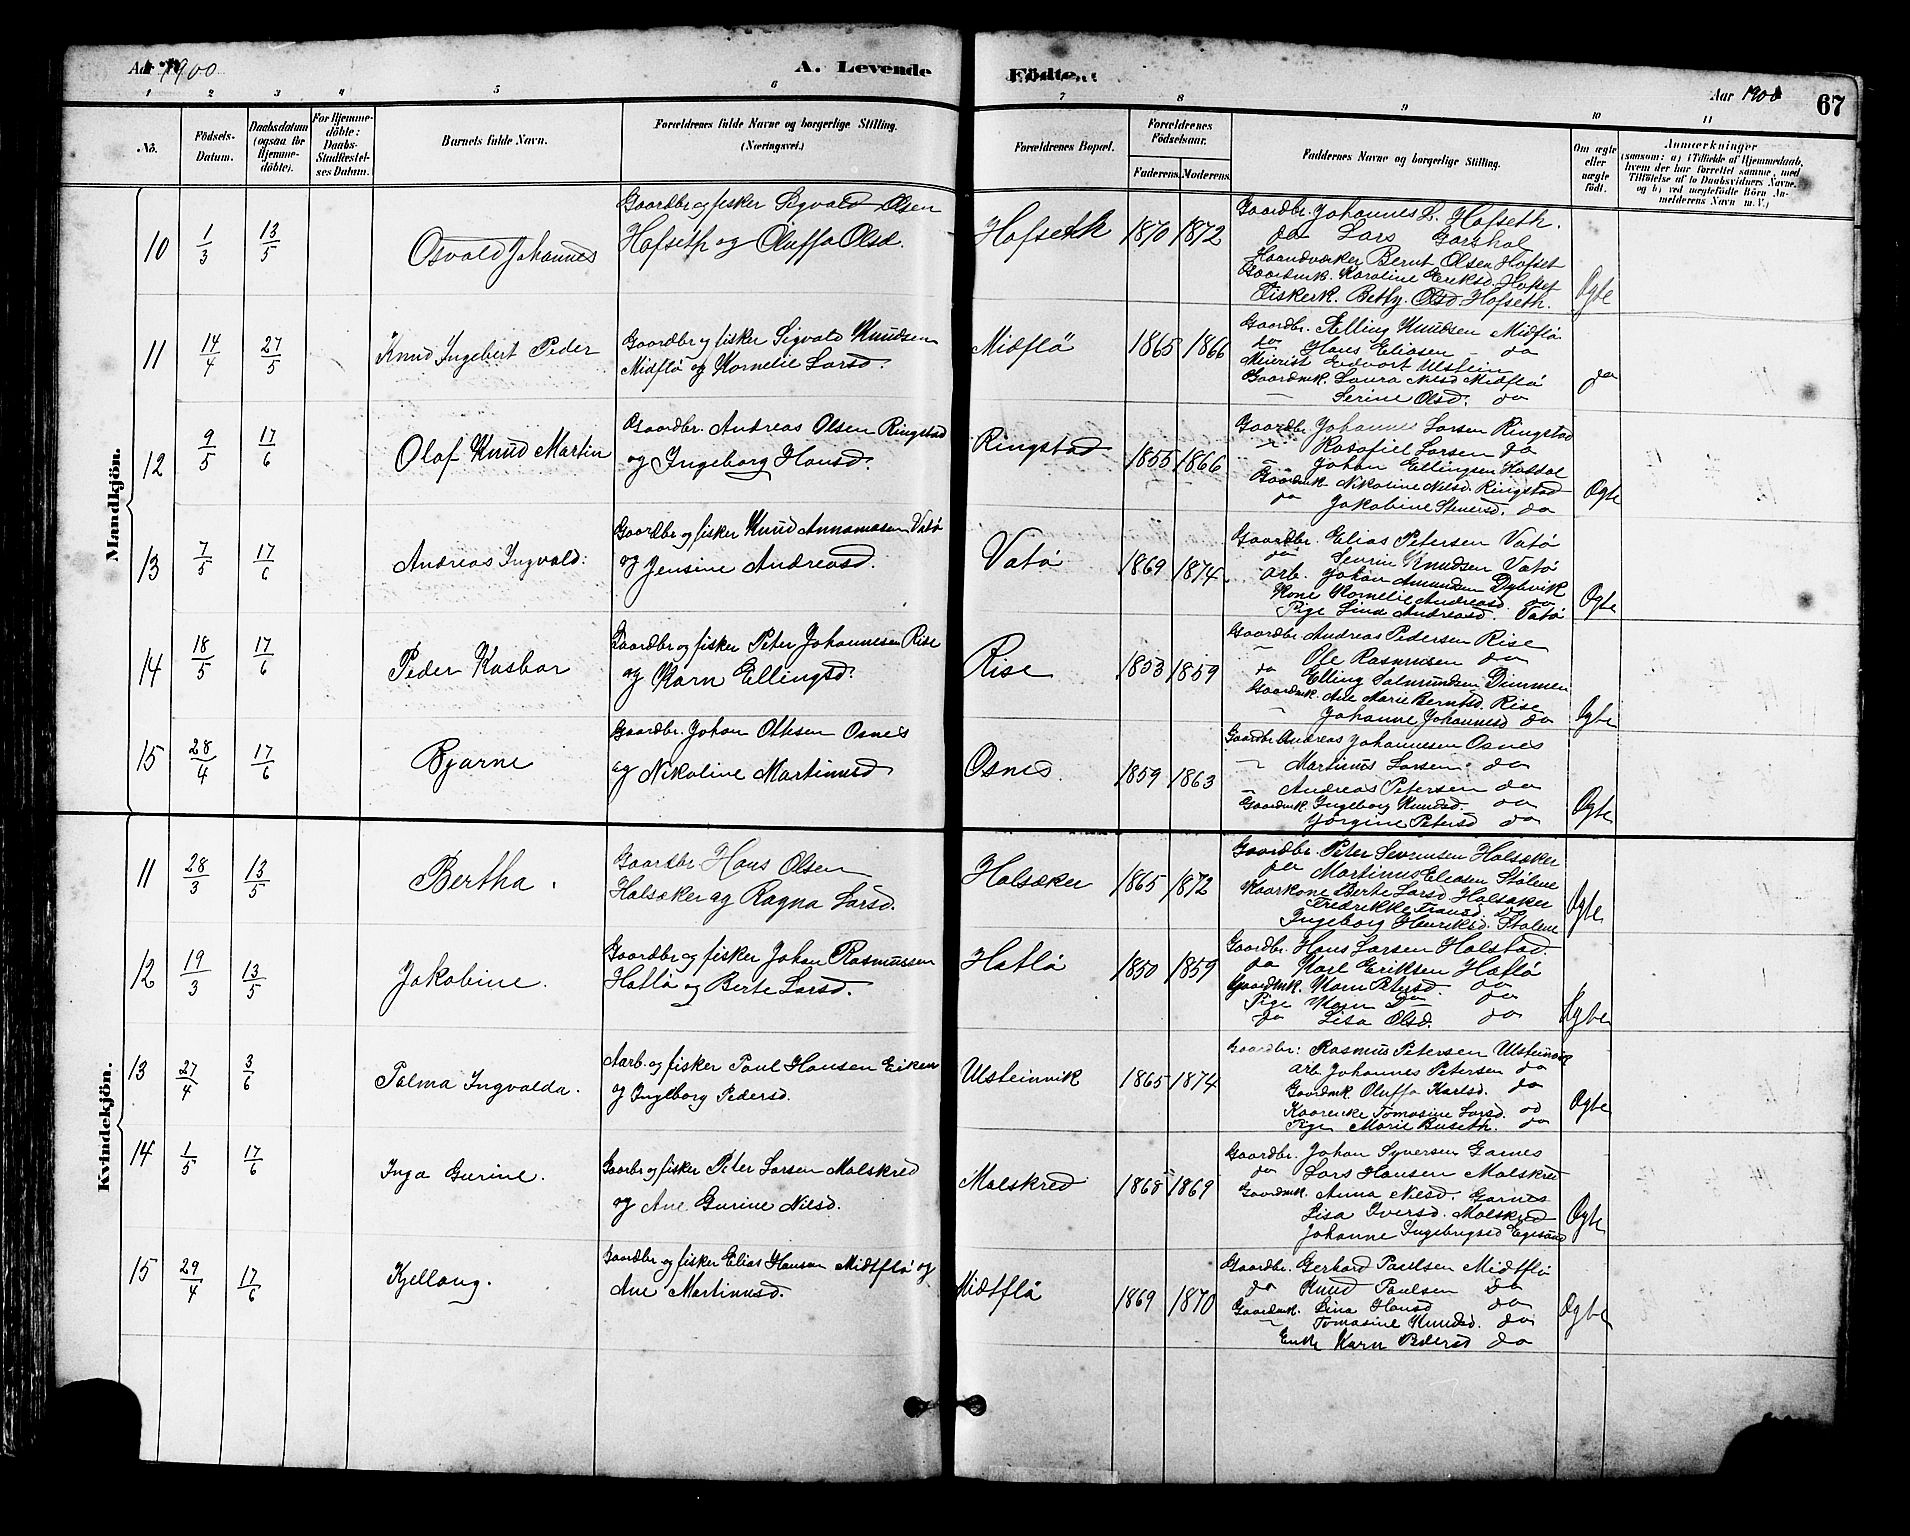 Aar 1900
A. Levende
Födte.
Aar 1900
67
1 2 3 4 5 6 7 8 9 10 11
No.
Födsels-Datum.
Daabsdatum (ogsaa for Hjemmedöbte).
For Hjemmedöbte: Daabs-Stadfæstelses Datum.
Barnets fulde Navn.
Forældrenes fulde Navne og borgerlige Stilling. (Næringsvei.)
Forældrenes Bopæl.
Forældrenes Födselsaar.
Faderens. Moderens.
Faddernes Navne og borgerlige Stilling.
Om ægte eller uægte födt.
Anmærkninger
(saasom: a) i Tilfælde af Hjemmedaab, hvem der har forrettet samme, med Tilföielse af to Daabsvidners Navne, og b) ved uægtefödte Börn Anmelderens Navn m. V.)
Mandkjön.
10 1/3 13/5 Osvald Johannes
Gaardbr og fisker Sigvald Olsen
Hofseth og Oluffa Olsd.
Hofseth 1870 1872
Gaardbr. Johannes L. Hofseth.
do Lars Garshol
Haandværker Bernt Olsen Hofset
Gaardmk. Karoline Eriksd. Hofset
Fiskerk. Betty Olsd Hofseth.
Ægte
11 14/4 27/5 Knud Ingebert Peder
Gaardbr og fisker Sigvald Knudsen
Midflö og Kornelie Larsd.
Midflö 1865 1866
Gaardbr. Elling Knudsen Midflö
do Hans Eliasen do
Meierist Edvart Ulstein
Gaardmk. Laura Nilsd Midflö
Serine Olsd. do
do
12 9/5 17/6 Olaf Knud Martin
Gaardbr. Andreas Olsen Ringstad
og Ingeborg Hansd.
Ringstad 1855 1866
Gaardbr Johannes Larsen Ringstad
Rasafiel Larsen do
Johan Ellingsen
Gaardmk Nikoline Nilsd. Ringstad
do Jakobine Steversd. do
Ægte
13 7/5 17/6 Andreas Ingvald.
Gaardbr og fisker Knud Annanasen Vatö
og Jensine Andreasd.
Vatö 1869 1874
Gaardbr. Elias Petersen Vatö
do Sevrin Knudsen Vatö
Arb. Johan Amundsen Dybvik
Kone Kornelie Andreasd. do
Pige Lina Andreasd. Vatö
Ægte
14 18/5 17/6 Peder Kasbar
Gaardbr og fisker Peter Johannesen Rise
og Karn Ellingsd.
Rise 1853 1859
Gaardbr. Andreas Pedersen Rise
Ole Rasmusen do
do Elling Salmundsen Dimmen
Gaardmk. Ane Marie Berntsd. Rise
Johanne Johannesd do
Ægte
15 28/4 17/6 Bjarne
Gaardbr. Johan Ottesen Osnes
og Nikoline Martinusd
Osnes. 1859 1863
Gaardbr Andreas Johannesen Osnes
Martinus Larsen do
Andreas Petersen do
Gaardmk. Ingeborg Knudsd. do
Jörgine Petersd do
Ægte
Kvindekjön.
11 28/3 13/5 Bertha.
Gaardbr Hans Olsen
Halsæker og Ragna Larsd.
Halsæker 1865 1872
Gaardbr. Peter Sevrensen Halsæker
do Martinus Eliasen Stölene
Kaarkone Berte Larsd Halsæker
Fredrikke Fransd. do
Ingeborg Henriksd. Stölene
Ægte
12 19/3 13/5 Jakobine.
Gaardbr og fisker Johan Rasmussen
Hatlö og Berte Larsd.
Hatlö 1850 1859
Gaardbr. Hans Larsen Halstad.
do Karl Eriksen Hatlö
Gaardmk. Karn Petersd. do
Pige Karn Do do
do Lisa Olsd. do
Ægte
13 27/4 3/6 Palma Ingvalda.
Aarb. og fisker Paul Hansen Eiken
og Ingeborg Pedersd.
Ulsteinvik 1865 1874
Gaardbr: Rasmus Petersen Ulsteinvik
Arb Johannes Petersen do
Gaardmk Oluffa Karlsd. do
Kaarenke Tomasine Larsd. do
Pige Marie Buseth. do
Ægte
14 1/5 17/6 Inga Gurine.
Gaarbr og fisker Peter Larsen Malskred
og Ane Gurine Nilsd.
Malskred 1868 1869
Gaardbr. Johan Syversen Garnes
do Lars Hansen Malskred
Gaardmk. Anna Nilsd. Garnes
Lisa Iversd. Malskred
Johanne Ingebrigtsd Egesund
Ægte
15 29/4 17/6 Kjellaug.
Gaardbr og fisker Elias Hansen Midtflö og
Ane Martinusd.
Midtflö 1869 1870
Gaardbr. Gerhard Paulsen Midtflö
do Knud Paulsen do
Gaardmk. Lina Hansd do
Tomasine Knudsd. do
Enke Karn Pedersd do
Ægte